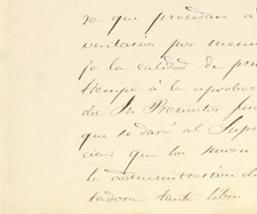 ra que procedan á
ventario por menor
jo la calidad de pro
tiempo á la aproba
de Sr. Promotor fis
que se dará al Sup
cia: que los
la administracion d
tadora tanto libro